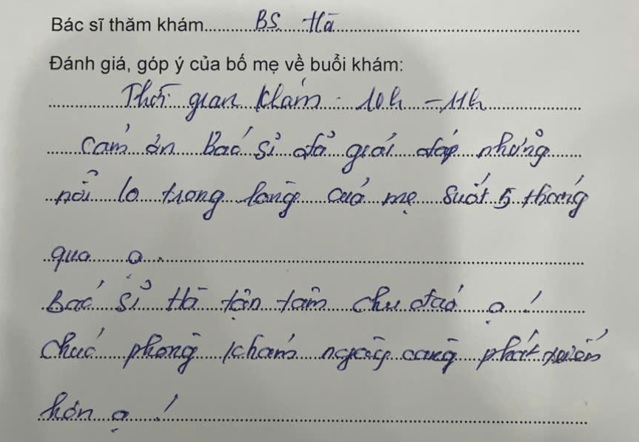 Bác sĩ thăm khám BS Hà
Đánh giá, góp ý của bố mẹ về buổi khám:
Thời gian khám: 10h - 11h
Cảm ơn Bác sĩ đã giải đáp những
nỗi lo trong lòng của mẹ suốt 5 tháng
qua ạ.
Bác sĩ Hà tận tâm chu đáo ạ!
Chúc phòng khám ngày càng phát triển
hơn ạ!